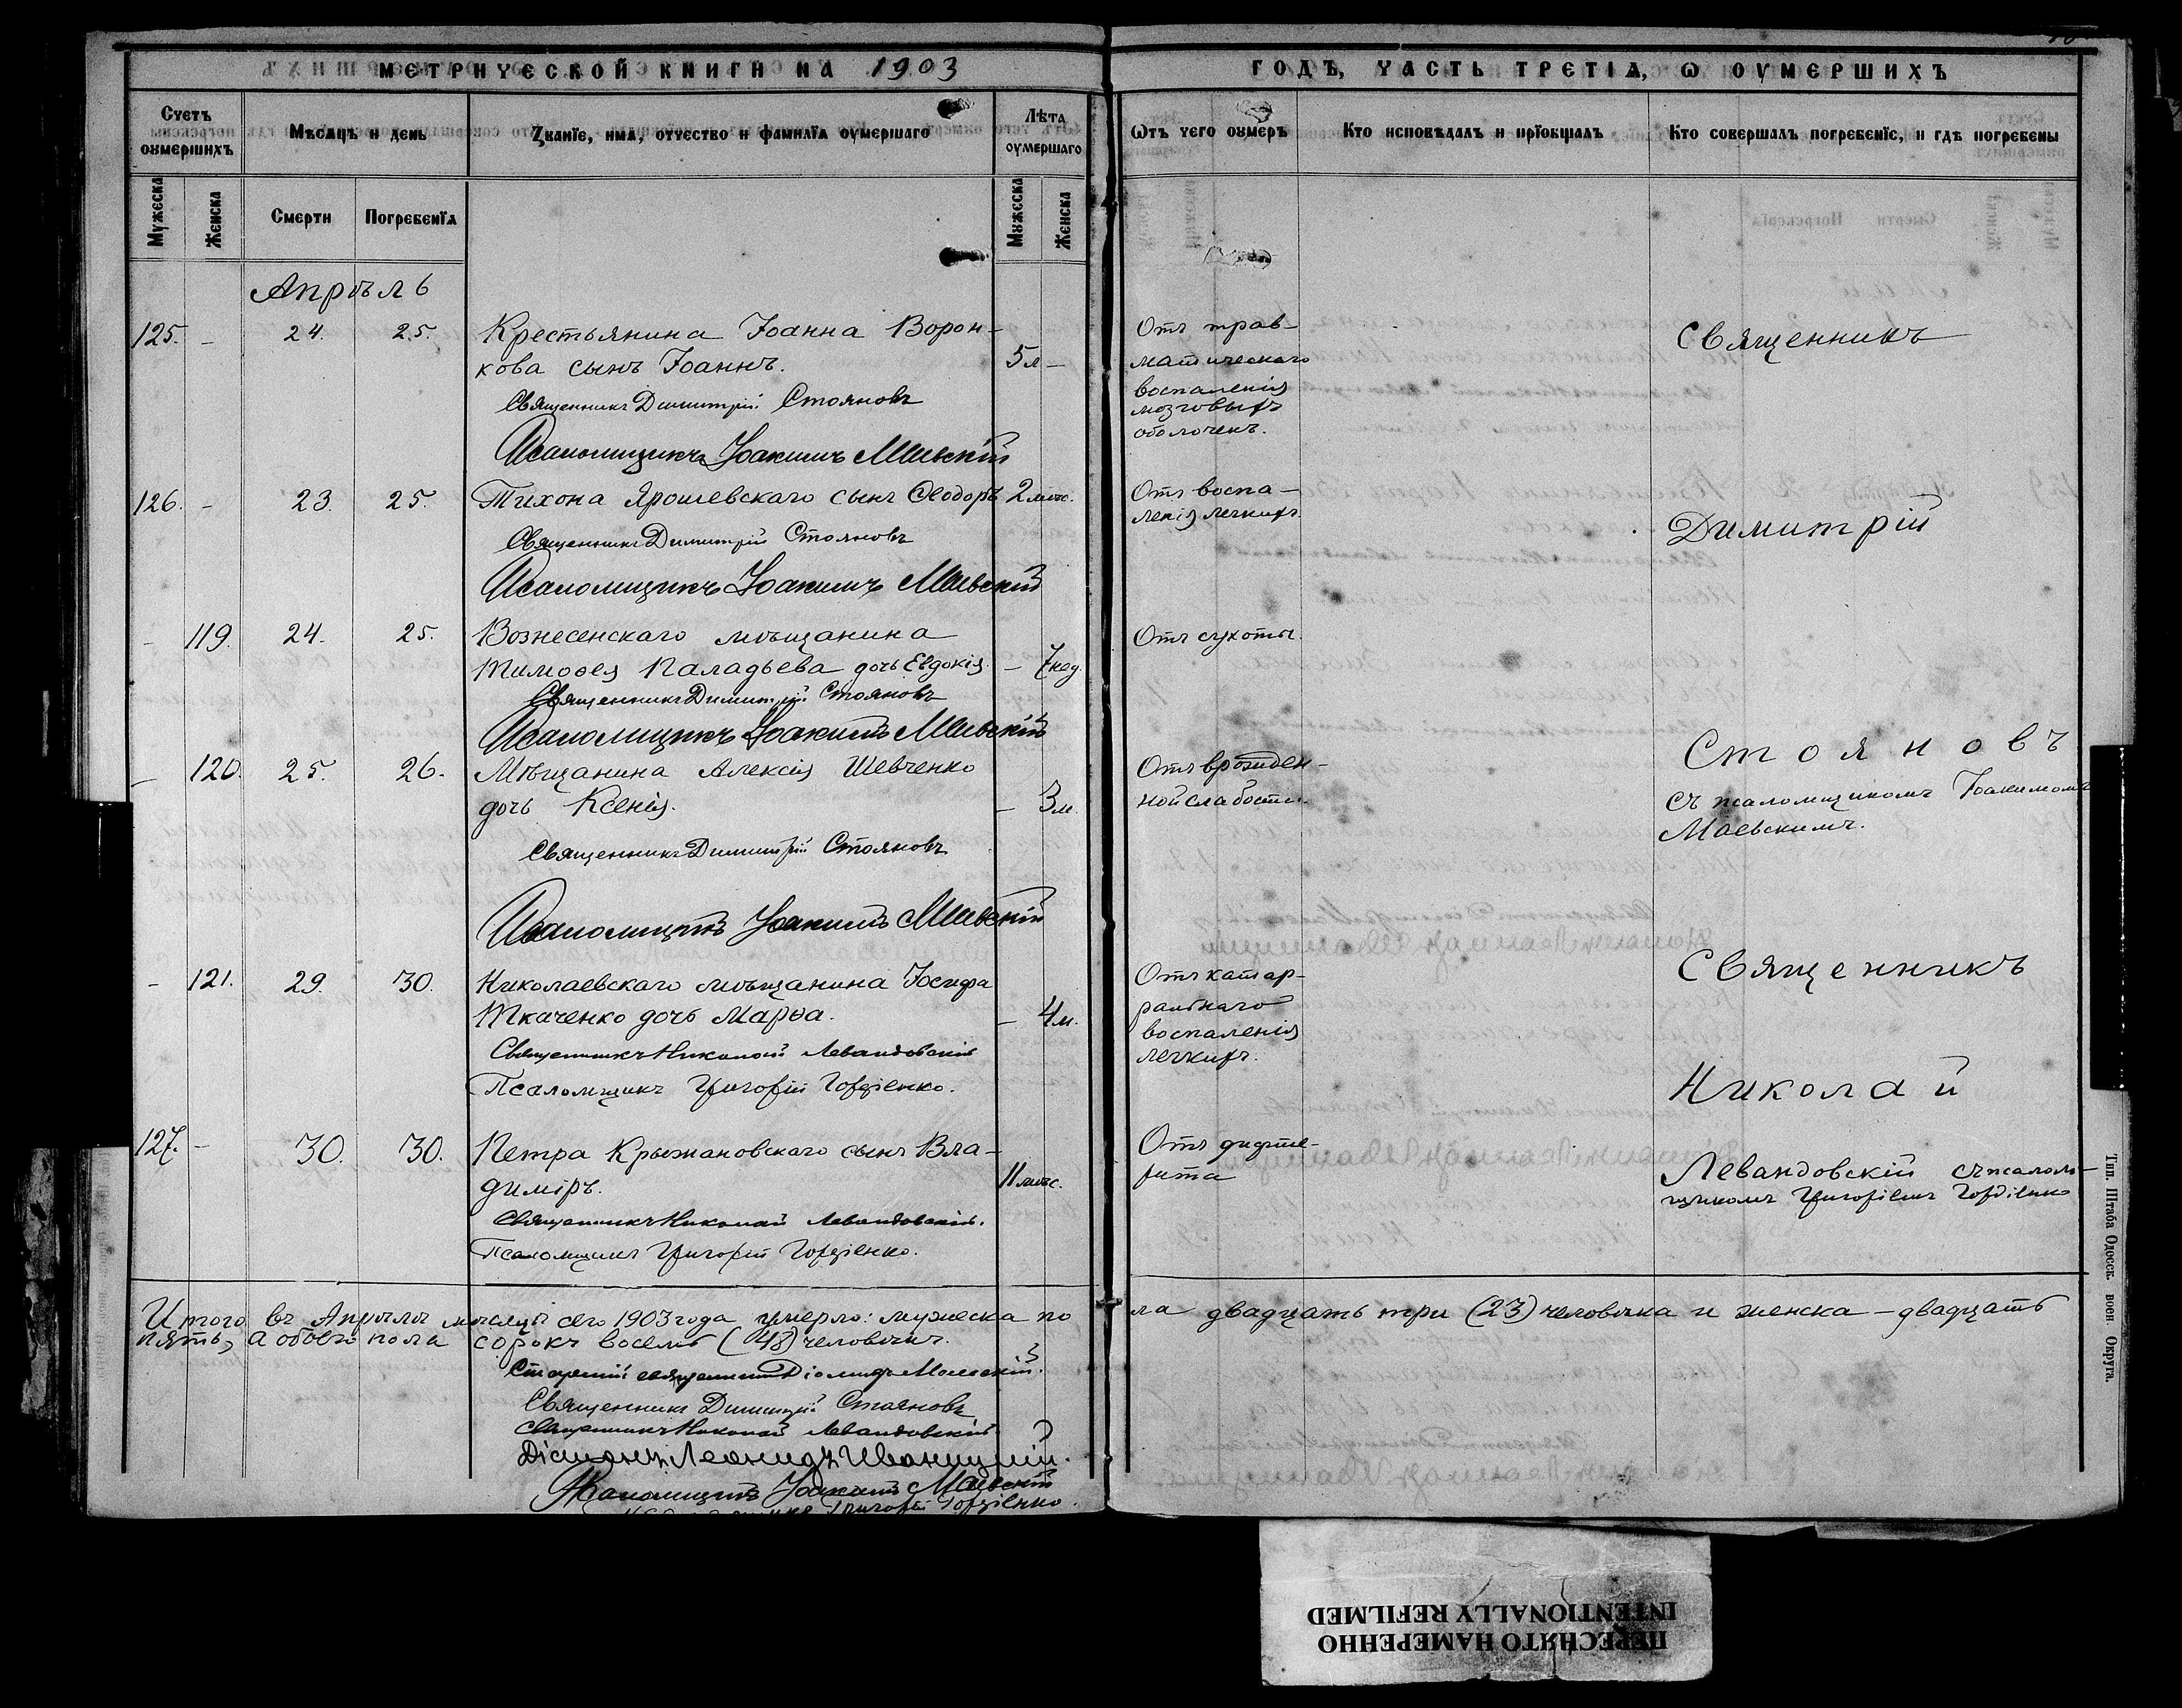 МЕТРИЧЕСКОЙ КНИГИ НА 1903
ГОДЪ, ЧАСТЬ ТРЕТІѦ, Ѡ ОУМЕРШИХЪ
Счетъ оумершихъ
Мѣсѧцъ и день
Званіе, имѧ, отчество и фамиліѧ оумершаго
Лѣта оумершаго
Отъ чего оумеръ
Кто исповѣдалъ и пріобщалъ
Кто совершалъ погребеніе, и гдѣ погребены
Мужеска
Женска
Смерти
Погребеніѧ
Мужеска
Женска
Апрѣль
125. - 24. 25. Крестьянина Іоанна Ворон-
кова сынъ Іоаннъ. 5 л -
Священникъ Димитрій Стояновъ
Псаломщикъ Іоакимъ Маевскій
Отъ трав-
матическаго
воспаленія
мозговыхъ
оболочекъ.
Священникъ
126. - 23. 25. Тихона Ярошевскаго сынъ Ѳеодоръ 2 мѣс.
Священникъ Димитрій Стояновъ
Псаломщикъ Іоакимъ Маевскій
Отъ воспа-
ленія легкихъ.
Димитрій
- 119. 24. 25. Вознесенскаго мѣщанина
Тимоѳея Паладьева дочь Евдокія. - 7 нед.
Священникъ Димитрій Стояновъ
Псаломщикъ Іоакимъ Маевскій
Отъ сухоты.
- 120. 25. 26. Мѣщанина Алексія Шевченко
дочь Ксенія. - 3 м.
Священникъ Димитрій Стояновъ
Псаломщикъ Іоакимъ Маевскій
Отъ врожден-
ной слабости.
Стояновъ
съ псаломщикомъ Іоакимомъ
Маевскимъ.
- 121. 29. 30. Николаевскаго мѣщанина Іосифа
Ткаченко дочь Марѳа. - 4 м.
Священникъ Николай Левандовскій
Псаломщикъ Григорій Гордіенко.
Отъ катар-
ральнаго
воспаленія
легкихъ.
Священникъ
Николай
127. - 30. 30. Петра Крыжановскаго сынъ Вла-
диміръ. 11 мѣс.
Священникъ Николай Левандовскій.
Псаломщикъ Григорій Гордіенко.
Отъ дифте-
рита
Левандовскій съ псалом-
щикомъ Григоріемъ Гордіенко
Итого въ Апрѣлѣ мѣсяцѣ сего 1903 года умерло: мужеска по
ла двадцать три (23) человѣка и женска - двадцать
пять, а обоего пола сорокъ восемь (48) человѣкъ.
Старшій священникъ Діомидъ Маевскій.
Священникъ Димитрій Стояновъ
Священникъ Николай Левандовскій
Діаконъ Леонидъ Иваницкій.
Псаломщикъ Іоакимъ Маевскій
Псаломщикъ Григорій Гордіенко.
Тип. Штаба Одесск. воен. Округа.
ПЕРЕСНЯТО НАМЕРЕННО
INTENTIONALLY REFILMED